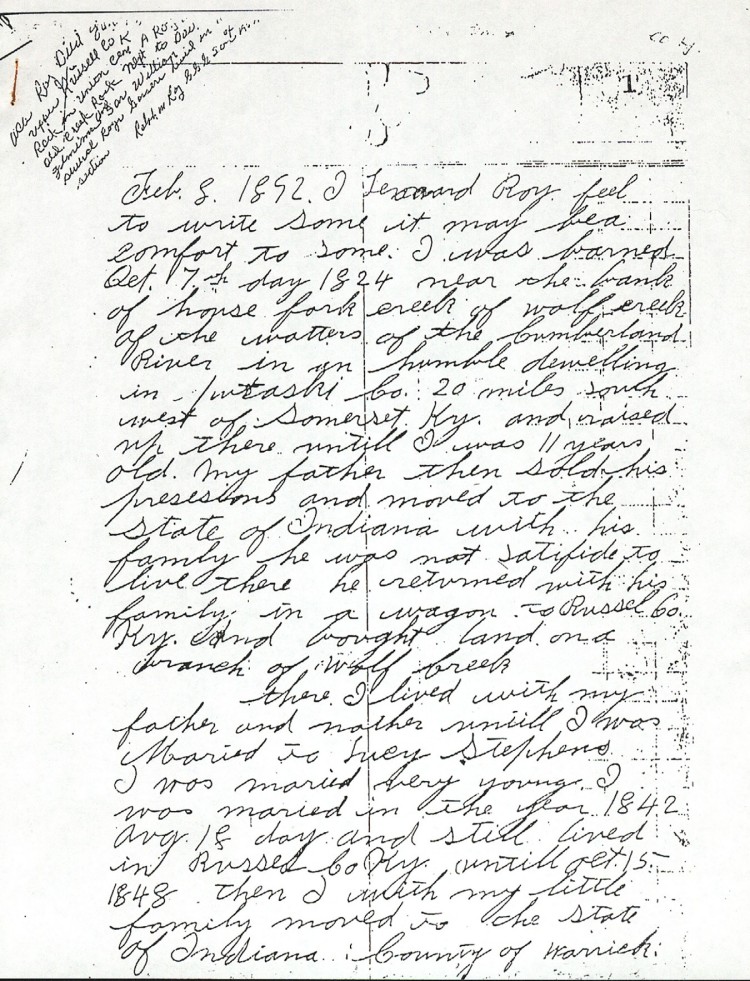 Roy Died
upper Russell Co K
Rock in union Cem A Roy.
old Creek Rock Next to Dav.
several Roys Lived in "
section
Ralph W Roy
1
Feb. 8. 1892. I Lenard Roy feel
to write some it may be a
comfort to some. I was borned
Oct. 7th day 1824 near the bank
of house fork creek of wolf creek
of the watters of the Cumberland
River in an humble dewelling
in Pulaski Co. 20 miles south
west of Somerset Ky. and raised
up there untill I was 11 years
old. My father then sold his
presesions and moved to the
state of Indiana with his
family he was not satifide to
live there he returned with his
family in a wagon to Russel Co.
Ky. And bought land on a
branch of Wolf Creek
there I lived with my
father and mother untill I was
Maried to Lucy Stephens
I was maried very young. I
was maried in the year 1842
Aug 18 day and still lived
in Russel Co Ky. untill Oct. 15
1848 then I with my little
family moved to the state
of Indiana. County of Warrick.